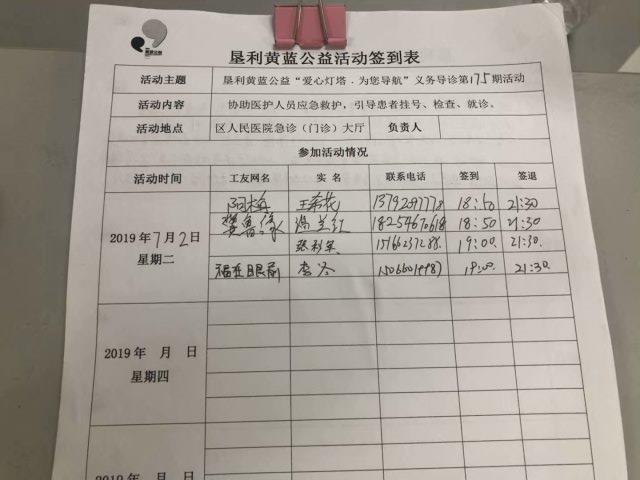 垦利黄蓝公益活动签到表
活动主题 垦利黄蓝公益“爱心灯塔．为您导航”义务导诊第175期活动
活动内容 协助医护人员应急救护，引导患者挂号、检查、就诊。
活动地点 区人民医院急诊（门诊）大厅 负责人
参加活动情况
活动时间 工友网名 实 名 联系电话 签到 签退
2019年7月2日
星期二
18:50 21:30
18254670618 18:50 21:30
19:00. 21:30.
福在眼前 李冬 19:00. 21:30.
2019年 月 日
星期四
2019年 月 日